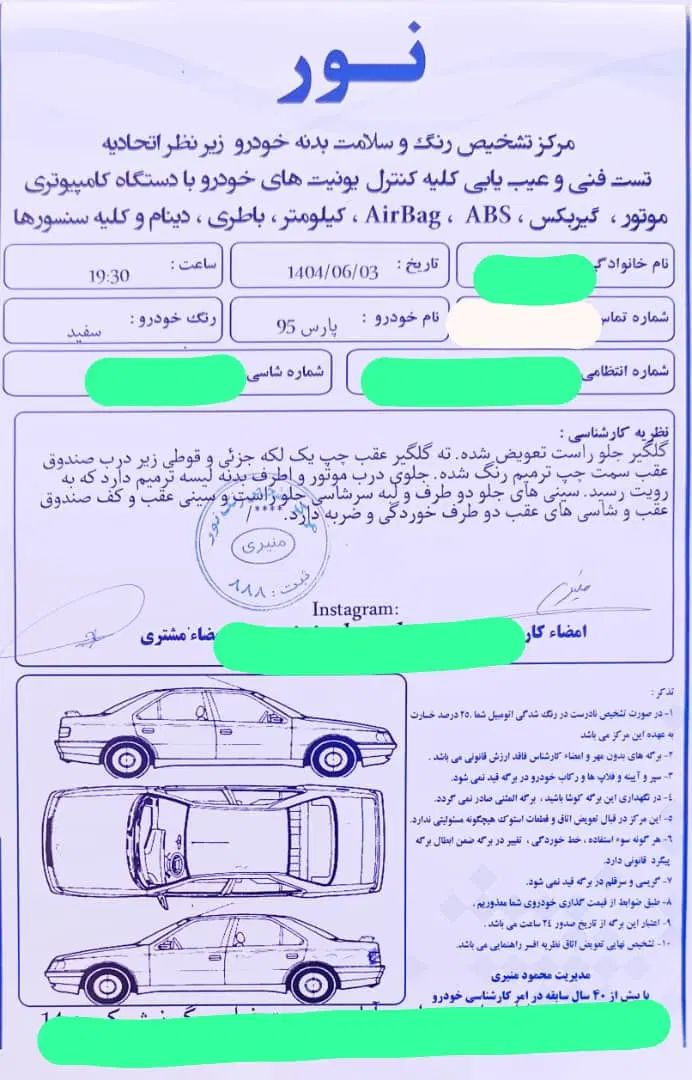 نور
مرکز تشخیص رنگ و سلامت بدنه خودرو زیر نظر اتحادیه
تست فنی و عیب یابی کلیه کنترل یونیت های خودرو با دستگاه کامپیوتری
موتور ، گیربکس ، AirBag ، ABS ، کیلومتر ، باطری ، دینام و کلیه سنسورها
نام خانوادگی تاریخ : 1404/06/03 ساعت : 19:30
شماره تماس نام خودرو : پارس 95 رنگ خودرو : سفید
شماره انتظامی شماره شاسی
نظریه کارشناسی :
گلگیر جلو راست تعویض شده. ته گلگیر عقب چپ یک لکه جزئی و قوطی زیر درب صندوق
عقب سمت چپ ترمیم رنگ شده. جلوی درب موتور و اطرف بدنه لیسه ترمیم دارد که به
رویت رسید. سینی های جلو دو طرف و لبه سرشاسی جلو راست و سینی عقب و کف صندوق
عقب و شاسی های عقب دو طرف خوردگی و ضربه دارد.****/
منیری
ثبت : ۸۸۸
Instagram:
امضاء کار
مضاء مشتری
تذکر :
۱- در صورت تشخیص نادرست در رنگ شدگی اتومبیل شما ۲۵ درصد خسارت
به عهده این مرکز می باشد
۲- برگه های بدون مهر و امضاء کارشناس فاقد ارزش قانونی می باشد .
۳- سپر و آیینه و فلاپ ها و رکاب خودرو در برگه قید نمی شود.
۴- در نگهداری این برگه کوشا باشید ، برگه المثنی صادر نمی گردد.
۵- این مرکز در قبال تعویض اتاق و قطعات استوک هیچگونه مسئولیتی ندارد.
۶- هر گونه سوء استفاده ، خط خوردگی ، تغییر در برگه ضمن ابطال برگه
پیگرد قانونی دارد.
۷- گریسی و سرقلم در برگه قید نمی شود.
۸- طبق ضوابط از قیمت گذاری خودروی شما معذوریم .
۹- اعتبار این برگه از تاریخ صدور ۲۴ ساعت می باشد .
۱۰- تشخیص نهایی تعویض اتاق نظریه افسر راهنمایی می باشد.
مدیریت محمود منیری
با بیش از ۴۰ سال سابقه در امر کارشناسی خودرو